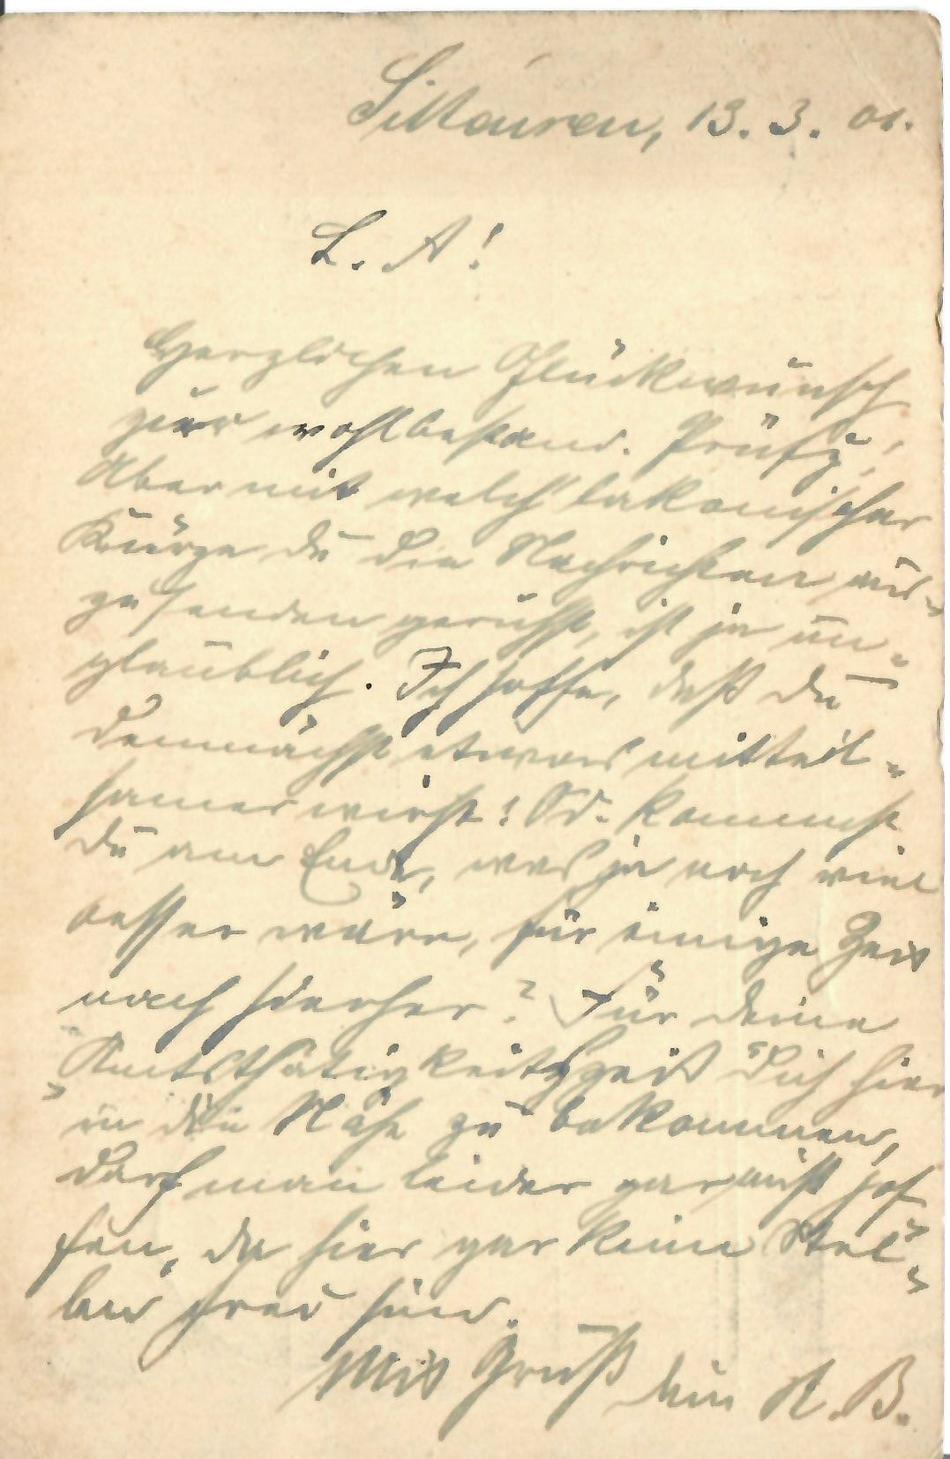 Sittauren, 13. 3. 01.
L. A!
Herzlichen Glückwunsch
zur wohlbestand. Prüfg.!
Aber mit welch lakonischer
Kürze du die Nachrichten aus-
zusenden geruhst, ist ja un-
glaublich. Ich hoffe, daß du
demnächst etwas mitteil-
samer wirst! Od. kommst
du am Ende, was ja noch viel
besser wäre, für einige Zeit
noch hierher? Für deine
Amtsthätigkeitszeit dich hier
in die Nähe zu bekommen,
darf man leider gar nicht hof-
fen, da hier gar keine Stel-
len frei sind.
Mit Gruß dein R. B.